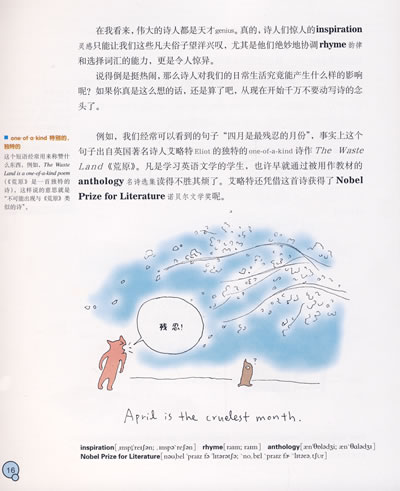 在我看来，伟大的诗人都是天才genius。真的，诗人们惊人的inspiration
灵感只能让我们这些凡夫俗子望洋兴叹，尤其是他们绝妙地协调rhyme韵律
和选择词汇的能力，更是令人惊异。
说得倒是挺热闹，那么诗人对我们的日常生活究竟能产生什么样的影响
呢？如果你真是这么想的话，还是算了吧，从现在开始千万不要动写诗的念
头了。
■ one of a kind 特别的，
独特的
这个短语经常用来称赞什
么东西。例如，The Waste
Land is a one-of-a-kind poem
（《荒原》是一首独特的
诗），这样说的意思就是
“不可能出现与《荒原》类
似的诗”。
例如，我们经常可以看到的句子“四月是最残忍的月份”，事实上这个
句子出自英国著名诗人艾略特Eliot的独特的one-of-a-kind诗作The Waste
Land《荒原》。凡是学习英语文学的学生，也许早就通过被用作教材的
anthology名诗选集读得不胜其烦了。艾略特还凭借这首诗获得了Nobel
Prize for Literature诺贝尔文学奖呢。
残忍！
April is the cruelest month.
inspiration rhyme anthology
Nobel Prize for Literature
16